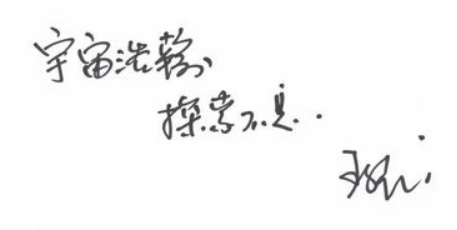 宇宙浩瀚
探索不息..